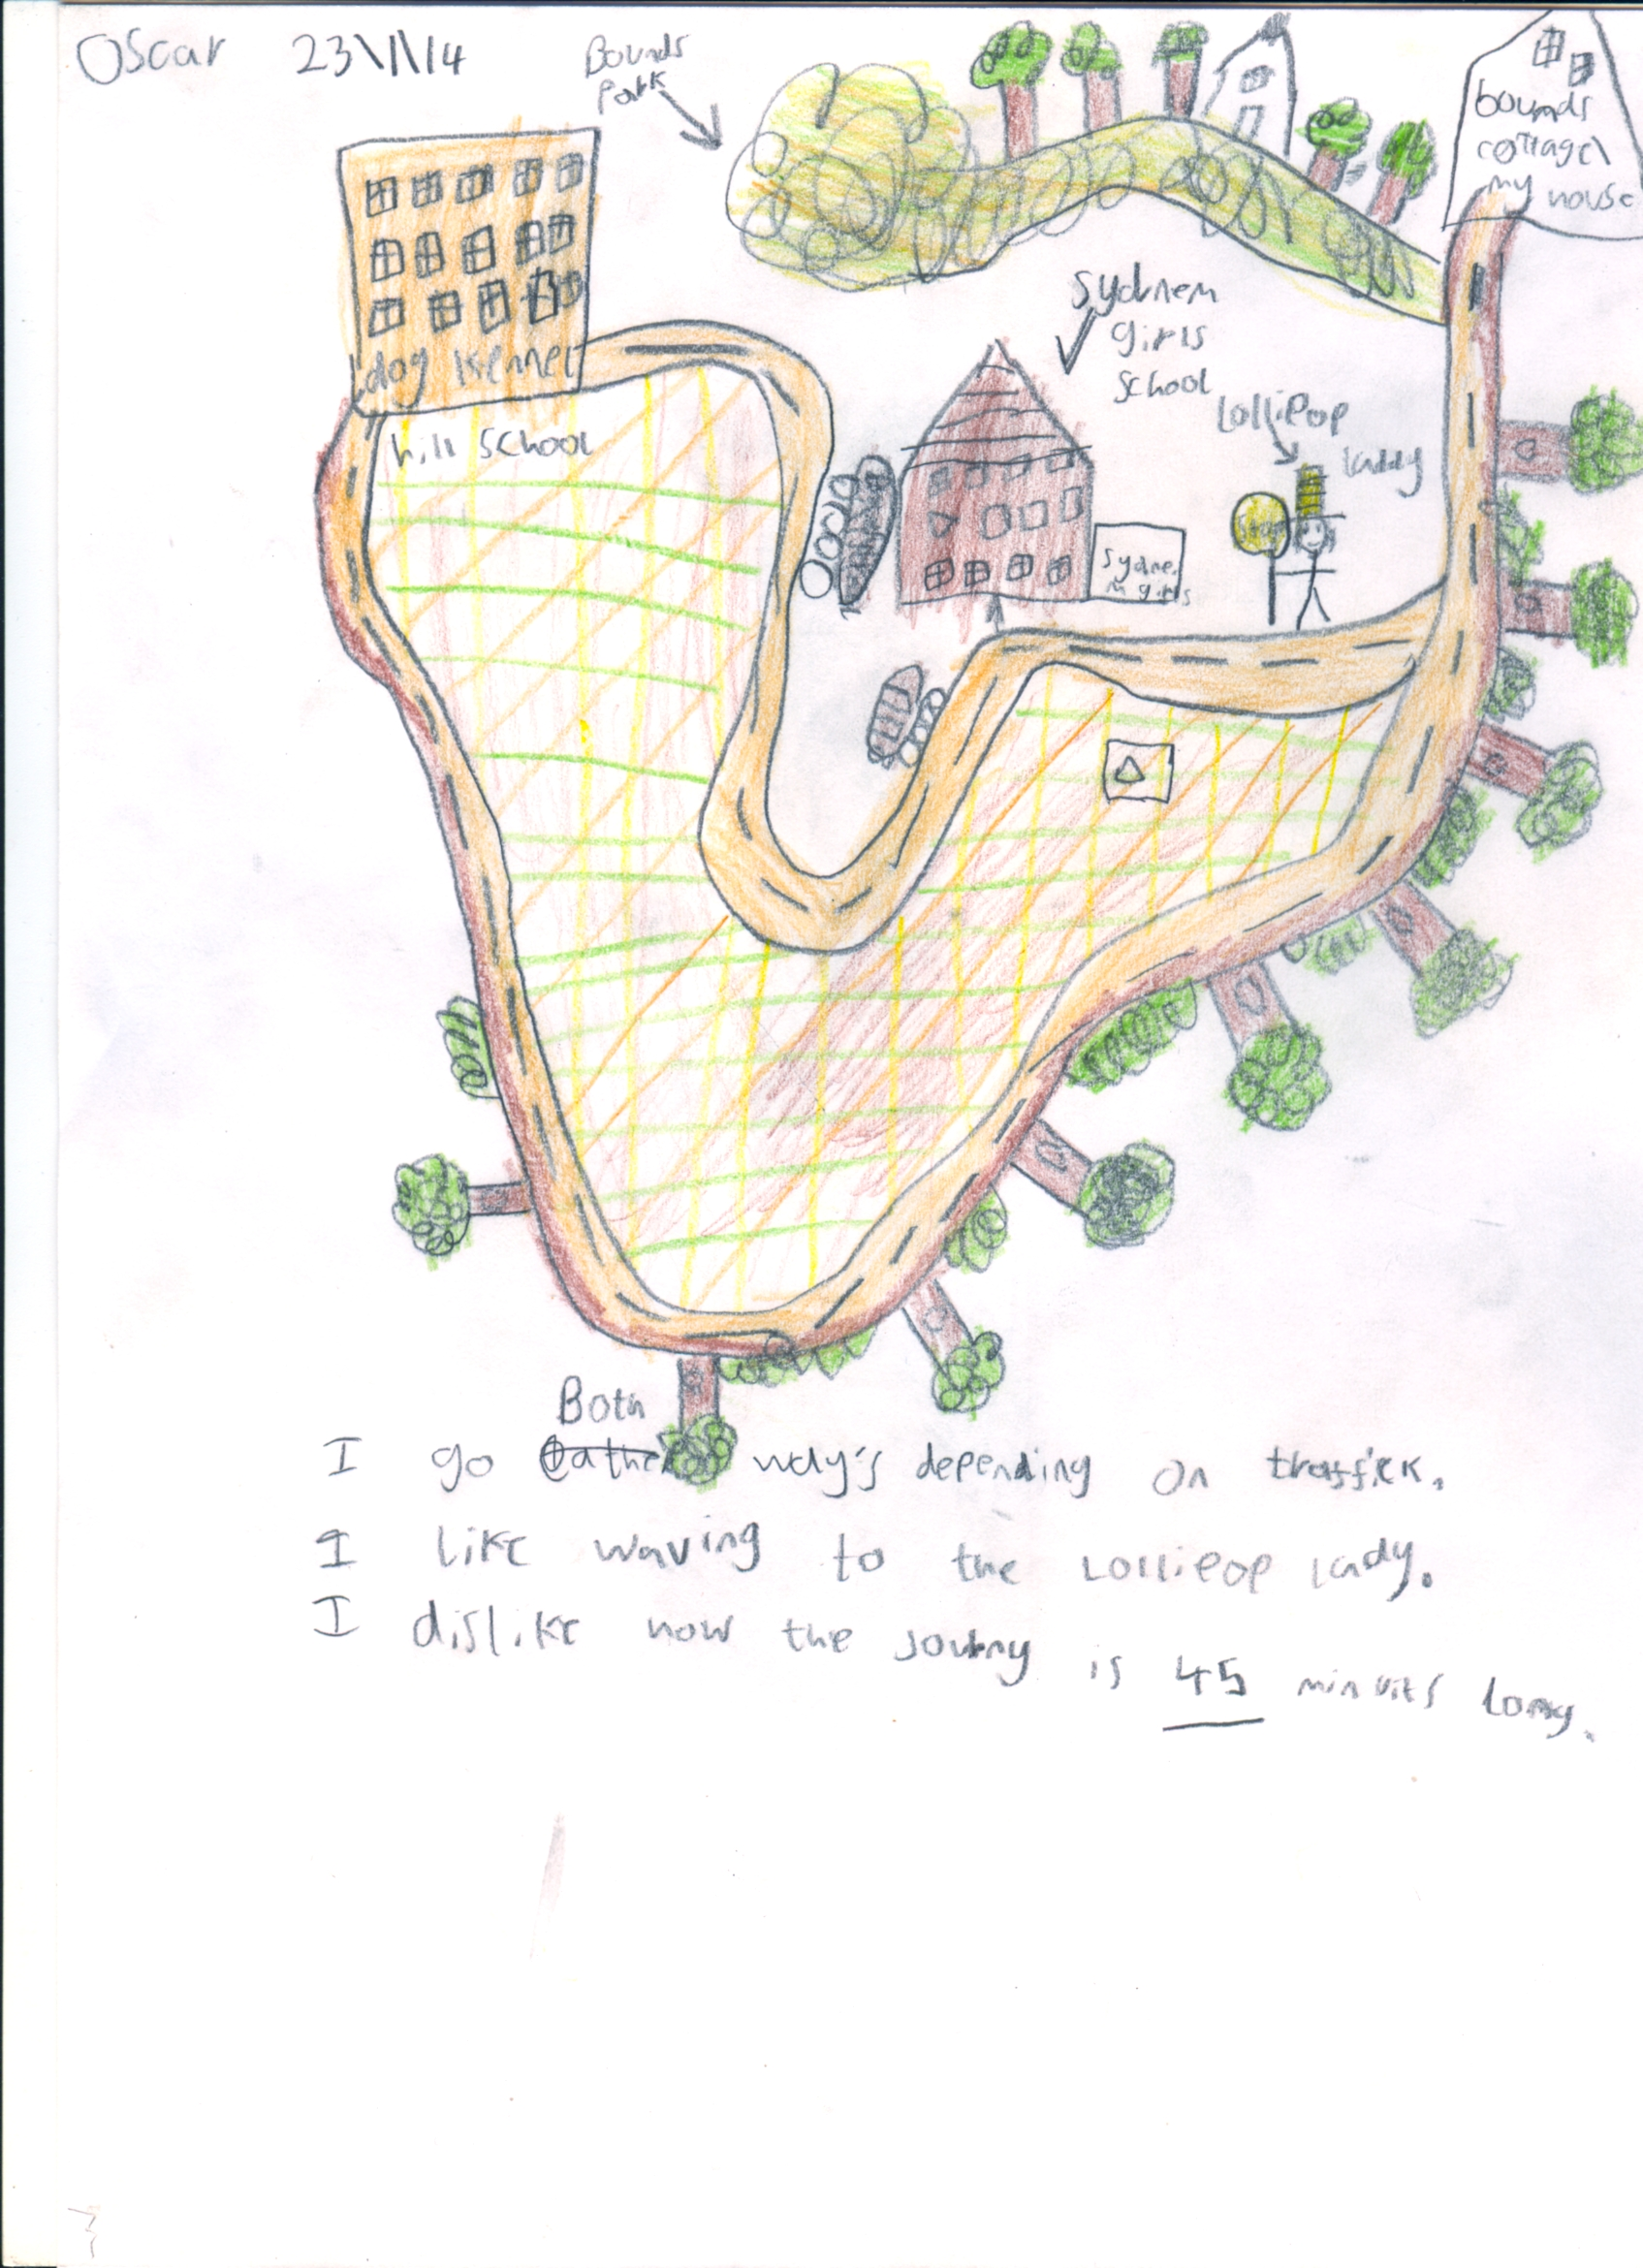 Oscar 23\1\14
Bounds
Park
bounds
cottage\
my house
dog kennel
hill school
Sydnem
girls
school
Lollipop
laddy
Sydne
m girls
Both
I go way's depending on traffick.
I like waving to the Lollipop lady.
I dislike how the journy is 45 minuits long.